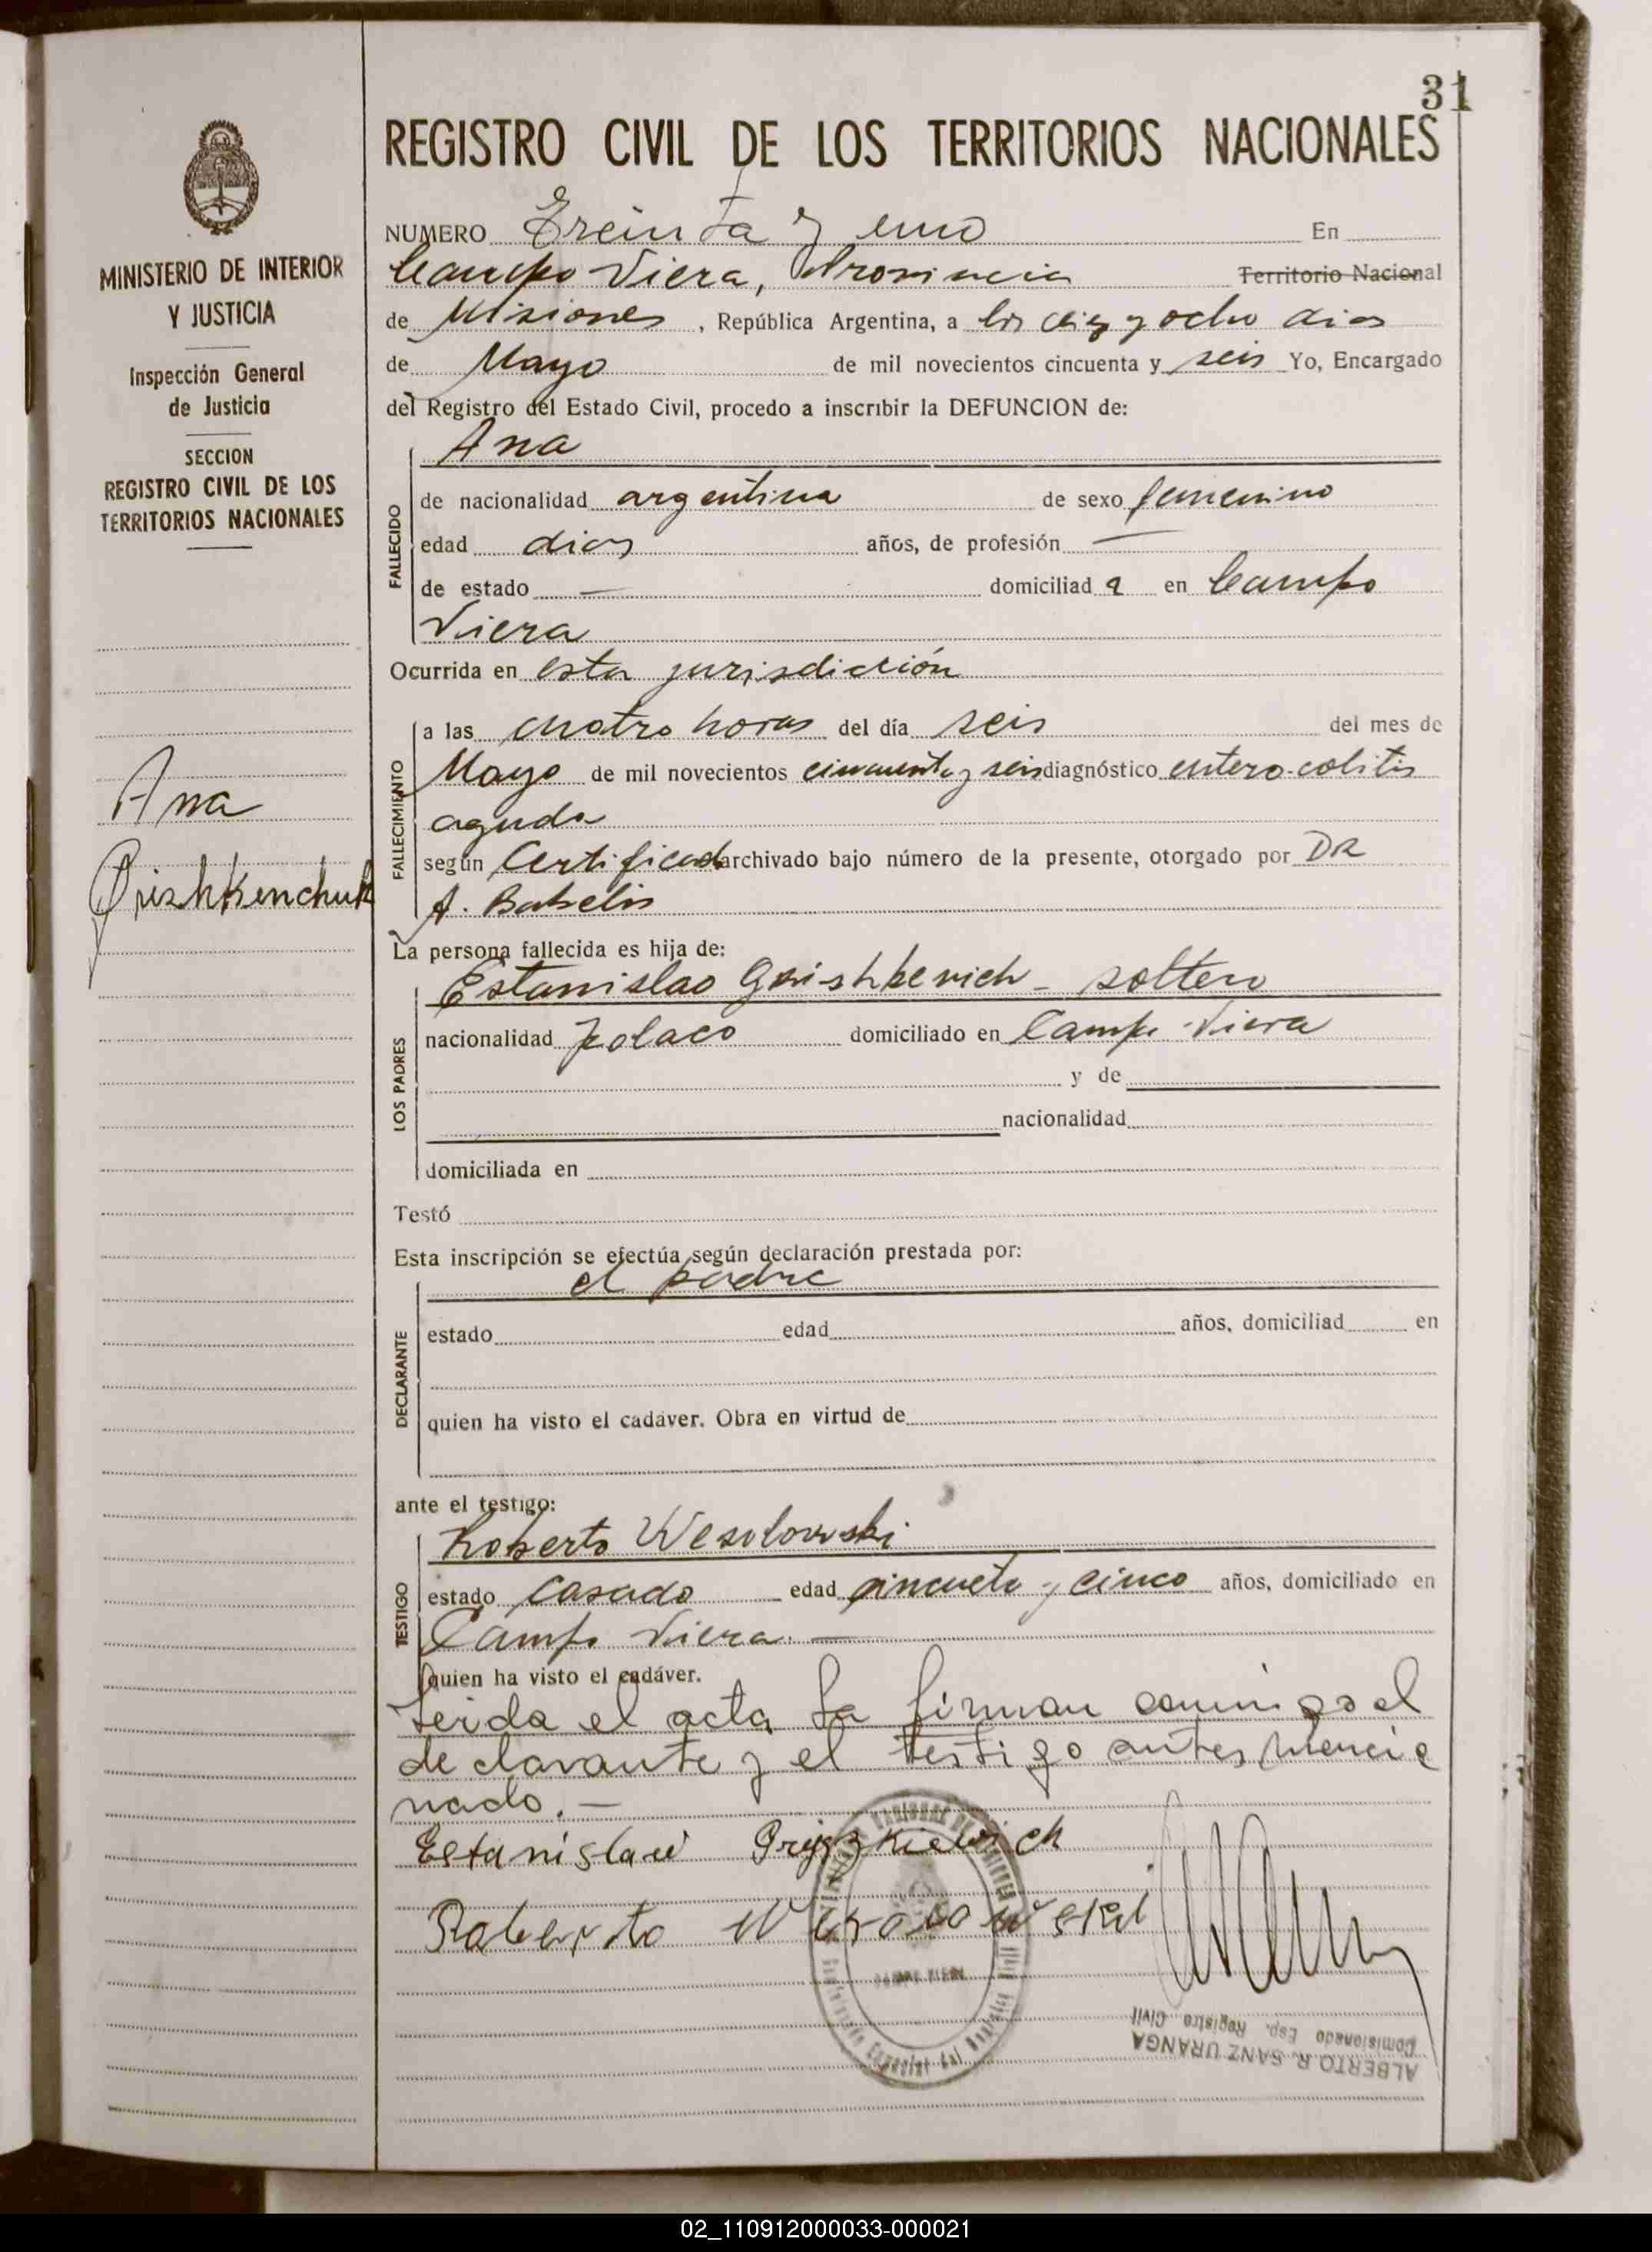 31
REGISTRO CIVIL DE LOS TERRITORIOS NACIONALES
MINISTERIO DE INTERIOR
Y JUSTICIA
Inspección General
de Justicia
SECCION
REGISTRO CIVIL DE LOS
TERRITORIOS NACIONALES
Ana
NUMERO Treinta y uno En
Campo Viera, Provincia Territorio Nacional
de Misiones, República Argentina, a los diez y ocho dias
de Mayo de mil novecientos cincuenta y seis Yo, Encargado
del Registro del Estado Civil, procedo a inscribir la DEFUNCION de:
FALLECIDO
Ana
de nacionalidad argentina de sexo femenino
edad dias años, de profesión —
de estado — domiciliad a en Campo
Viera
Ocurrida en esta jurisdicción
FALLECIMIENTO
a las cuatro horas del día seis del mes de
Mayo de mil novecientos cincuenta y seis diagnóstico entero-colitis
aguda
según Certificado archivado bajo número de la presente, otorgado por DR
A.
La persona fallecida es hija de:
LOS PADRES
Estanislao Grishkevich - soltero
nacionalidad polaco domiciliado en Campo Viera
y de
nacionalidad
domiciliada en
Testó
Esta inscripción se efectúa según declaración prestada por:
DECLARANTE
el padre
estado edad años, domiciliad en
quien ha visto el cadáver. Obra en virtud de
ante el testigo:
TESTIGO
Roberto Wesolowski
estado casado edad cincueta y cinco años, domiciliado en
Campo Viera. —
quien ha visto el cadáver.
Leida el acta la firman conmigo el
declarante y el testigo antes mencio
nado. —
Estanislaw Gryszkiewich
Roberto
CAMPO VIERA
ALBERTO R. SANZ URANGA
Comisionado Esp. Registro Civil
02_110912000033-000021